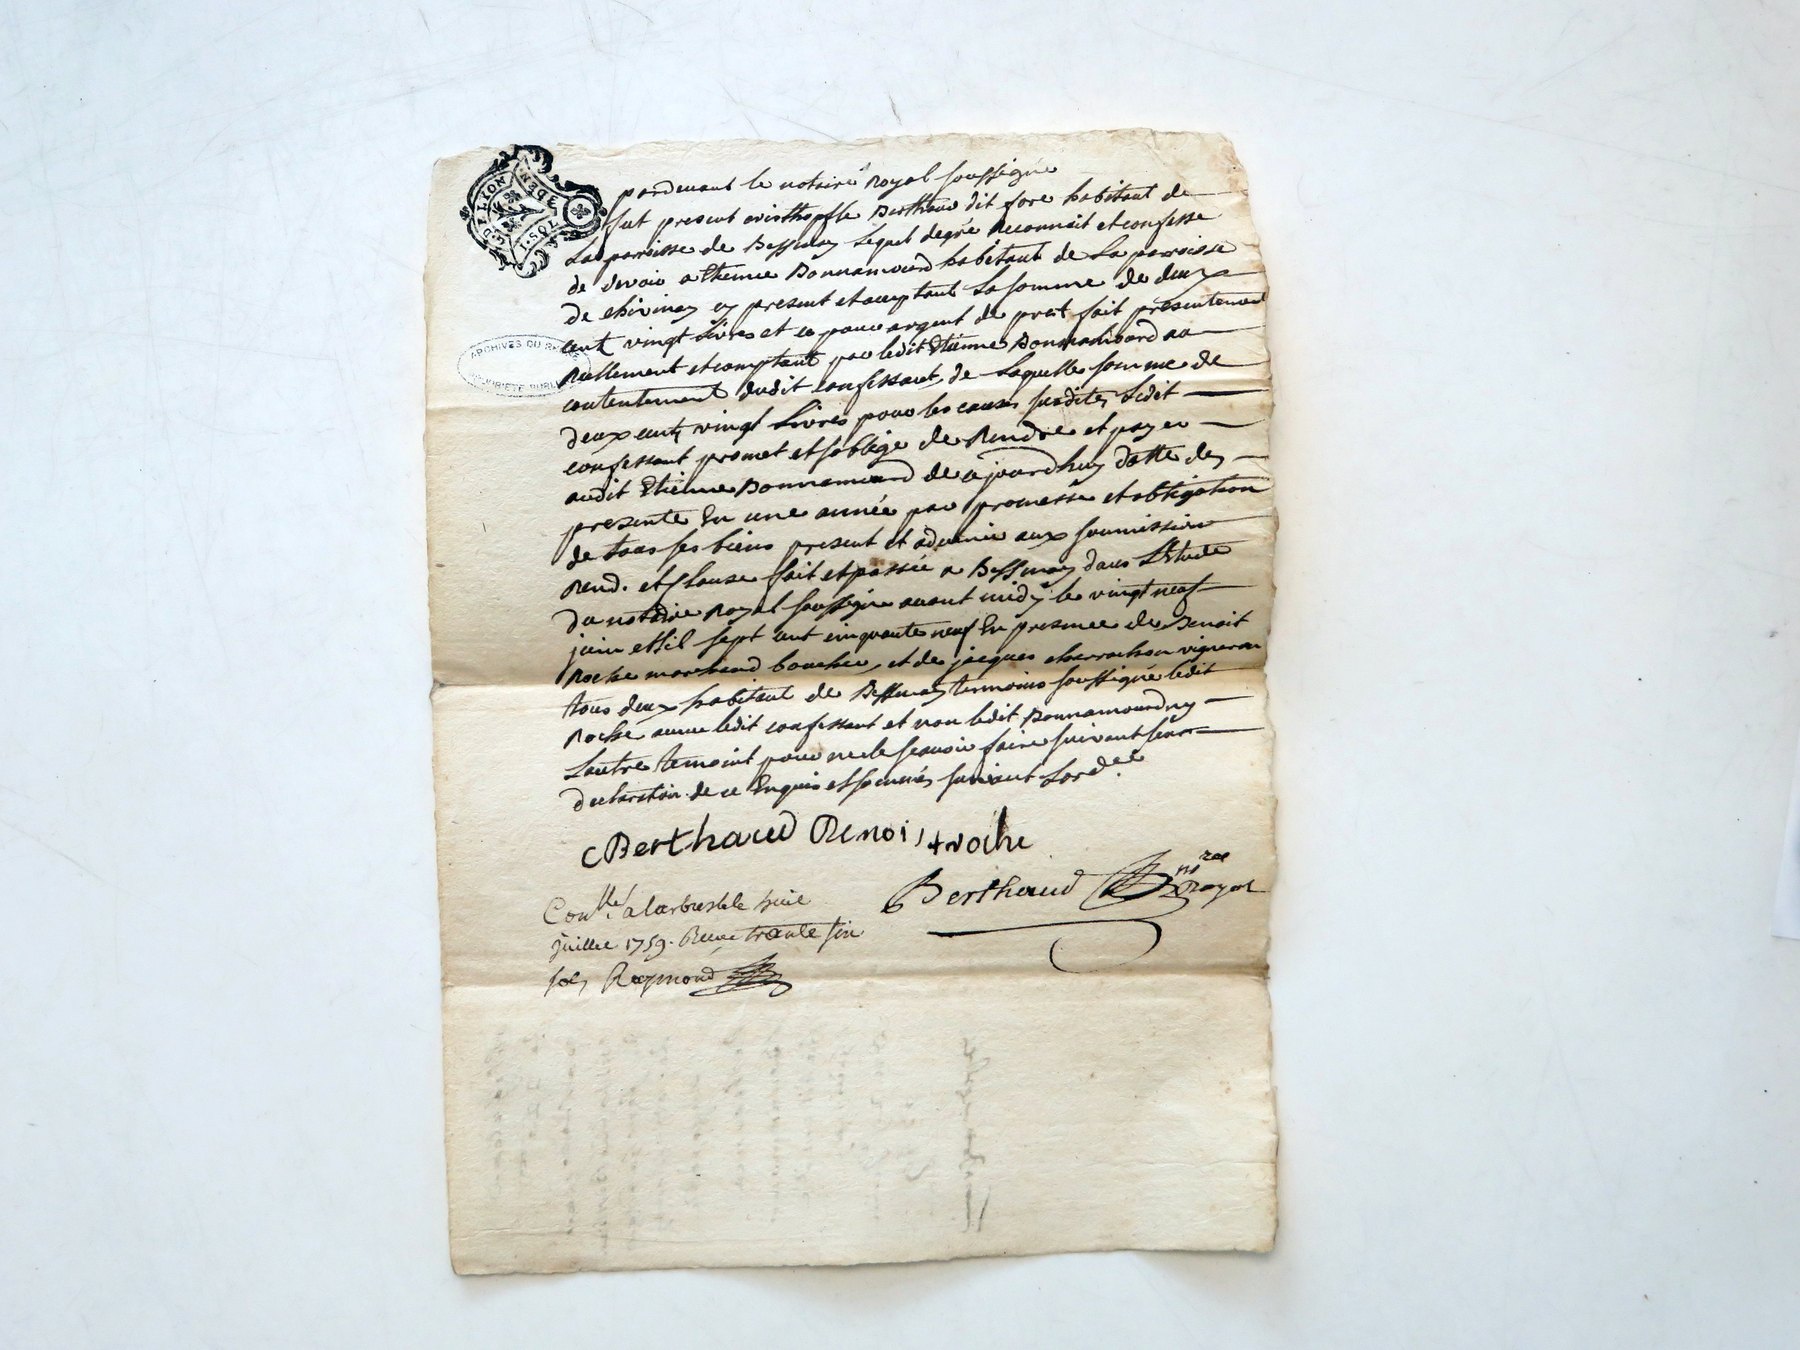 G. D. LION
DEN.
1. SOL
ARCHIVES DU RHÔNE
PROPRIÉTÉ PUBLIQUE
pardevant le notaire Royal soussigné
fut present cristhophle Berthaud dit fore habitant de
La parroisse de Bessenay Lequel degré reconnoit et confesse
de devoir a Etienne Bonnamourd habitant de La parroisse
de chivinay cy present et acceptant La somme de deux
cent vingt Livres et ce pour argent de pret fait presentement
Réellement et comptant par ledit Etienne Bonnamourd au
contentement dudit confessant, de Laquelle somme de
deux cent vingt Livres pour les causes susdites Ledit
confessant promet et soblige de Rendre et payer
audit Etienne Bonnamourd de cejourdhuy datte des
presente En une année par promesse et obligation
de tous ses biens present et advenir aux soumission
Renon. et Clause fait et passée a Bessenay dans L'Etude
du notaire Royal soussigné avant midy le vingt neuf
juin mil sept cent cinquante neuf En presence de Benoit
Roche marchand boucher, et de jacques cherrachon vigneron
tous deux habitant de Bessenay temoins soussigné ledit
Roche avec ledit confessant et non ledit Bonnamourd ny
Lautre temoint pour ne le scavoir faire suivant leur
declaration de ce Enquis et sommés suivant Lord.ce
Berthaud Benoit roche
Berthaud no.re Royal
Con.llé a larbresle le huit
juillet 1759. Reçu trente six
sols Raymond